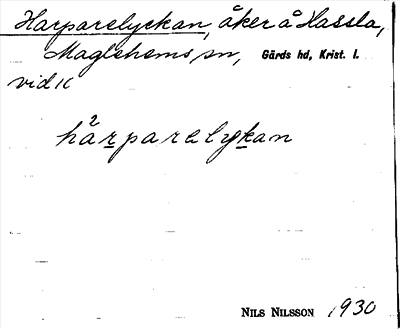 Harparelyckan, åker å Hassla,
Maglehems sn, Gärds hd, Krist. l.
vid
hårparelykan
NILS NILSSON 1930